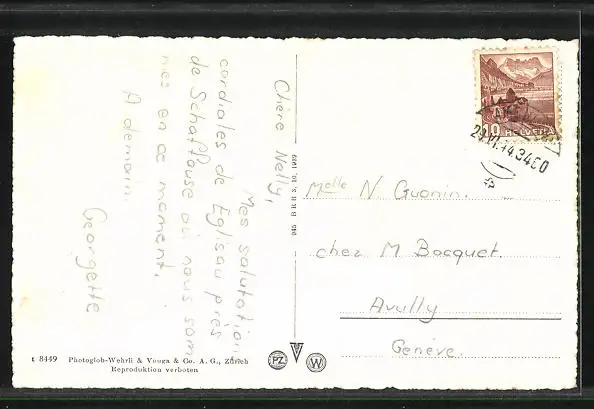 Chère Nelly,
Mes salutation
cordiales de Eglisau près
de Schaffouse où nous som
mes en ce moment.
A demain.
Georgette
945 BRB 3. 10. 1929
Melle N. Guonin.
chez M Bocquet.
Avully
Genève.
10 HELVETIA
t 8449 Photoglob-Wehrli & Vouga & Co. A. G., Zürich
Reproduktion verboten
PZ W